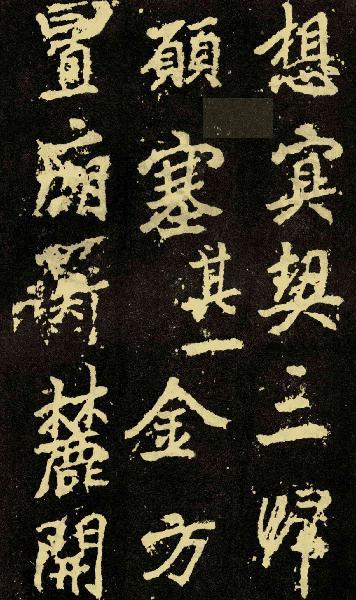 想冥契三歸
願塞其一金方
置廟麓開